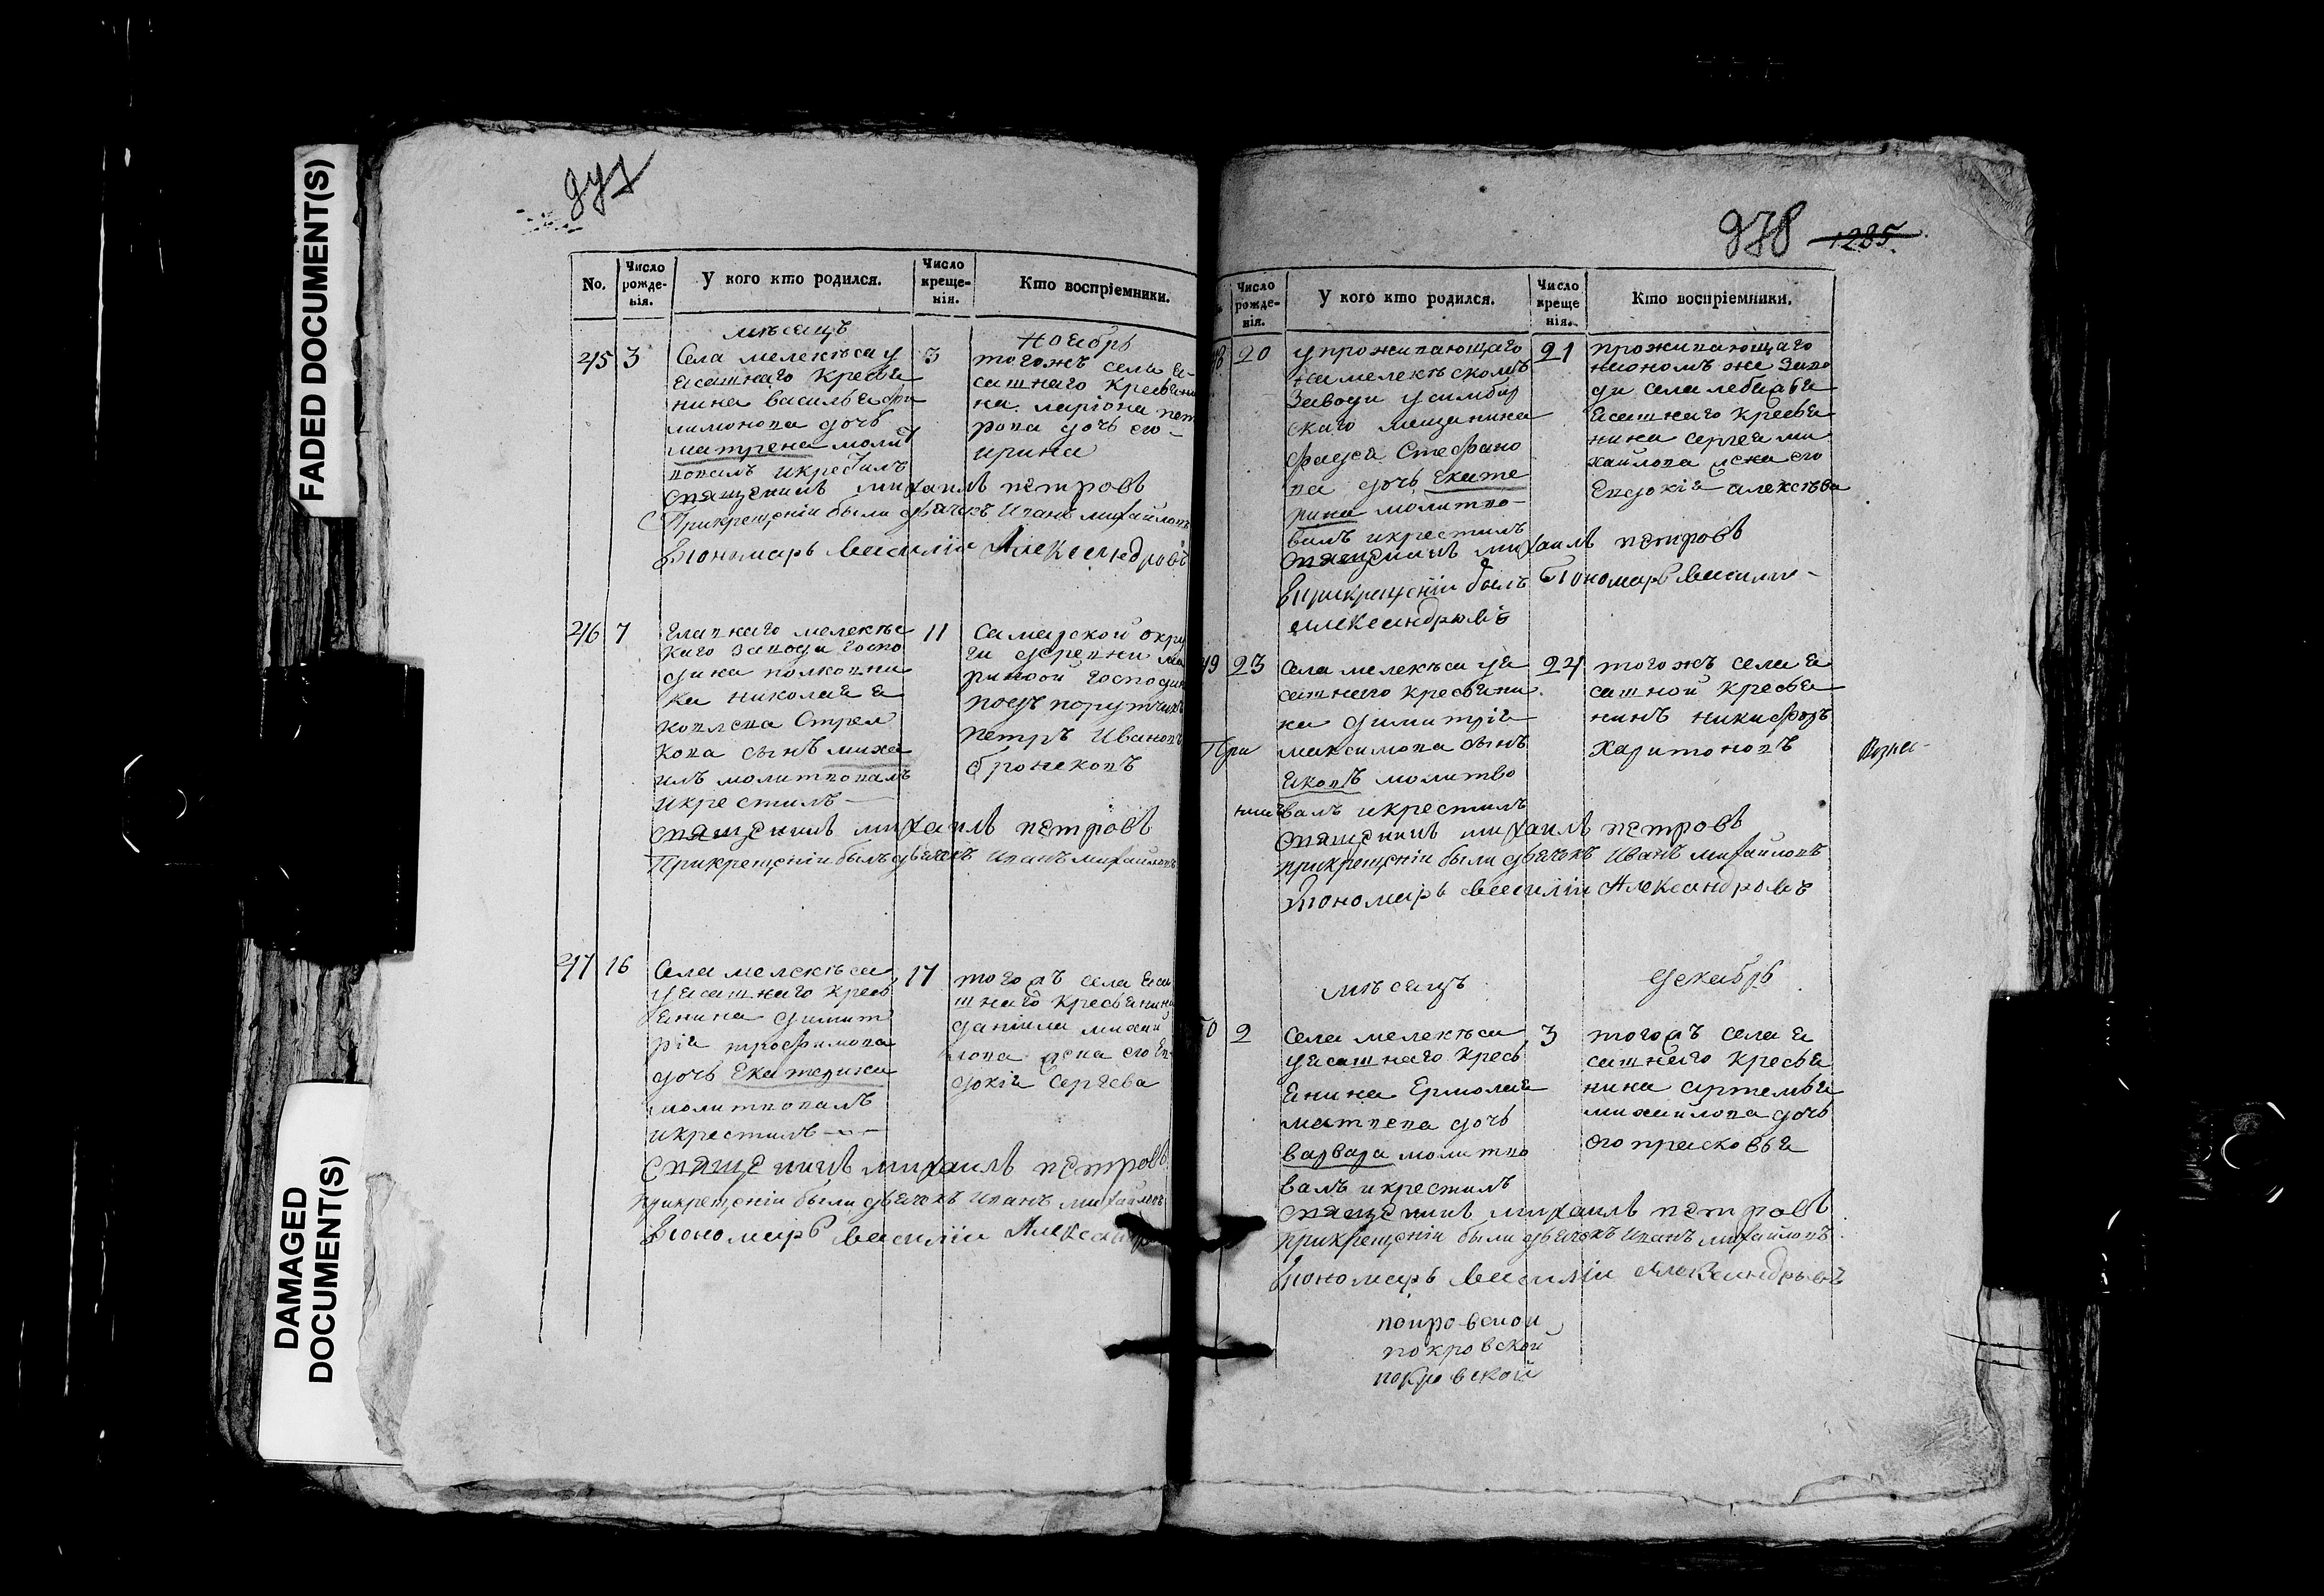 FADED DOCUMENT(S)
DAMAGED
DOCUMENT(S)
No.
Число
рожде-
нія.
У кого кто родился.
Число
креще-
нія.
Кто воспріемники.
мѣсецъ
ноябрь
3
Села мелекѣса у
ясашнаго кресья
нина василья фи
лимонова дочь
матрена моли
вовалъ икрестилъ
3
тогожъ села я-
сашнаго кресьяни
на ларіона пет
рова дочь его-
ирина
священникъ михаилъ петровъ
Прикрещеніи были дьячекъ иванъ михайловъ
Пономарь Василіи Александровъ
7
главнаго мелекѣс
каго завода госпо
дина полковни
ка николая я
ковлева Стрел
кова сынъ миха
илъ молитвовалъ
икрестилъ
11
самарской окру
ги деревни ма
риной господин
подъпорутчикъ
петръ Ивановъ
бронековъ
священникъ михаилъ петровъ
Прикрещеніи былъ дьячекъ иванъ михайловъ
16
Села мелекѣса
у ясашнаго кресь
янина димит
рія трофимова
дочь Екатерина
молитвовалъ
икрестилъ
17
тогожъ села ясa
шнаго кресьянина
даніила михай
лова жена его Ев
докія Сергѣева
священникъ михаилъ петровъ
прикрещеніи были дьячекъ иванъ михайловъ
Пономарь Василіи Александр
978 1285
Число
рожде-
нія.
У кого кто родился.
Число
креще
нія.
Кто воспріемники.
20
упроживающаго
на мелекѣскомъ
Заводи усимбир
скаго мещанина
фадея Стефано
ва дочь Екате
рина молитво-
валъ икрестилъ
21
проживающаго
наономъ же Заво
ди села лебяжья
ясашнаго кресья
нина сергея ми
хайлова жена его
Евдокія алексѣва
священникъ михаилъ петровъ
прикрещеніи былъ Пономарь Василіи
Александровъ
23
Села мелекѣса уя
сашнаго кресьяни
на димитрія
максимова сынъ
яковъ молитво
валъ икрестилъ
24
тогожъ села я
сашной кресья
нинъ никифоръ
харитоновъ
При
священникъ михаилъ петровъ
прикрещеніи были дьячекъ Иванъ михайловъ
Пономарь Василіи Александровъ
мѣсецъ
декабрь
2
Села мелекѣса
уясашнаго кресь
янина Ермолая
матвева дочь
варвара молитво
валъ икрестилъ
3
тогожъ села я
сашнаго кресья
нина артемья
михайлова дочь
его прасковья
священникъ михаилъ петровъ
прикрещеніи были дьячекъ иванъ михайловъ
Пономарь Василіи Александровъ
покровской
покровской
покровской